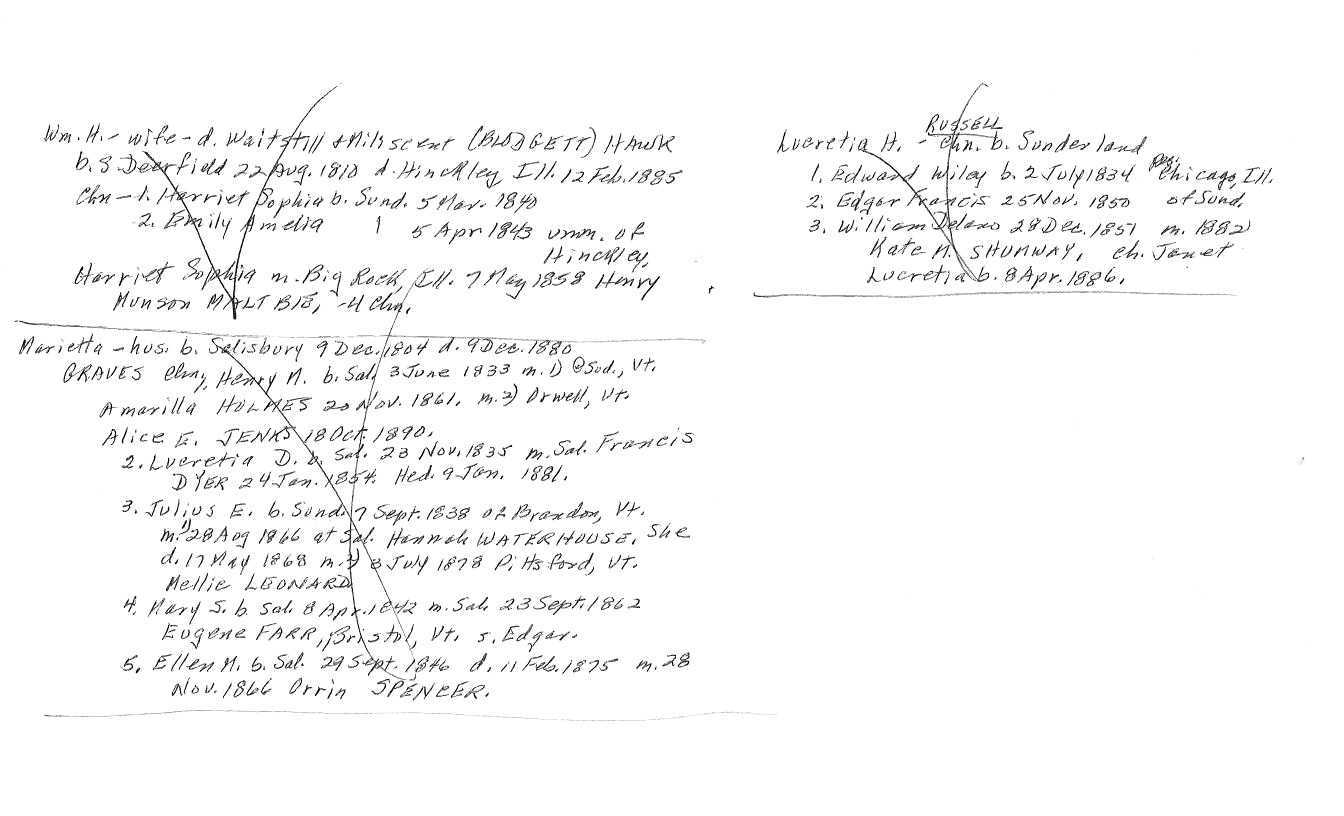 Wm. H. - wife - d. Waitstill + Miliscent (BLODGETT) HAWK
b. S. Deerfield 22 Aug. 1810 d. Hinckley Ill. 12 Feb. 1885
Chn - 1. Harriet Sophia b. Sund. 5 Mar. 1840
2. Emily Amelia 5 Apr 1843 unm. of
Hinckley,
Harriet Sophia m. Big Rock, Ill. 7 May 1858 Henry
Munson MALTBIE, -4 Chn.
Marietta - hus. b. Salisbury 9 Dec. 1804 d. 9 Dec. 1880
GRAVES Chn, Henry M. b. Sal. 3 June 1833 m. 1) @ Sud., Vt.
Amarilla HOLMES 20 Nov. 1861. m. 2) Orwell, Vt.
Alice E. JENKS 18 Oct. 1890.
2. Lucretia D. b. Sal. 23 Nov. 1835 m. Sal. Francis
DYER 24 Jan. 1854. He d. 9 Jan. 1881.
3. Julius E. b. Sund. 7 Sept. 1838 of Brandon, Vt.
m. 1) 28 Aug 1866 at Sal. Hannah WATERHOUSE. She
d. 17 May 1868 m. 2) 3 July 1878 Pittsford, Vt.
Mellie LEONARD
4. Mary S. b. Sal. 8 Apr. 1842 m. Sal. 23 Sept. 1862
Eugene FARR, Bristol, Vt. s. Edgar.
5. Ellen M. b. Sal. 29 Sept. 1846 d. 11 Feb. 1875 m. 28
Nov. 1866 Orrin SPENCER.
RUSSELL
Lucretia H. - chn. b. Sunderland
1. Edward Wiley b. 2 July 1834 Chicago, Ill.
2. Edgar Francis 25 Nov. 1850 of Sund.
3. William Delano 28 Dec. 1851 m. 1882
Kate M. SHUMWAY, ch. Janet
Lucretia b. 8 Apr. 1886.